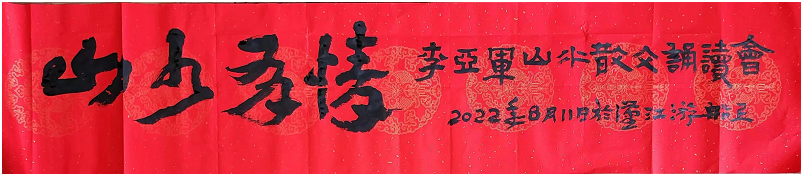 山水有情
李亞軍山水散文誦讀會
2022年8月11日於漢江游